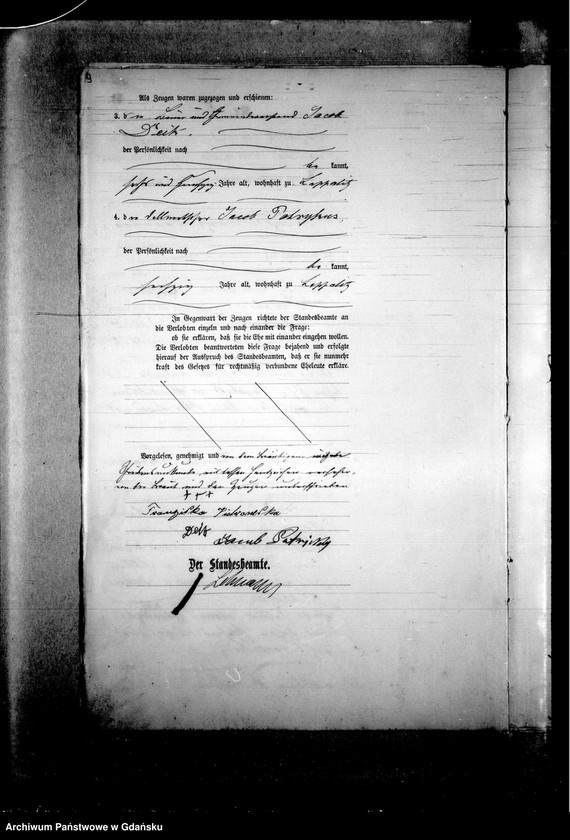 Als Zeugen waren zugezogen und erschienen:
3. d er Bauer und Gemeindevorstand Jacob
Deik
der Persönlichkeit nach
be kannt,
sechs und fünfzig Jahre alt, wohnhaft zu
4. d er Jacob Patrykus
der Persönlichkeit nach
be kannt,
sechzig Jahre alt, wohnhaft zu
In Gegenwart der Zeugen richtete der Standesbeamte an
die Verlobten einzeln und nach einander die Frage:
ob sie erklären, daß sie die Ehe mit einander eingehen wollen.
Die Verlobten beantworteten diese Frage bejahend und erfolgte
hierauf der Ausspruch des Standesbeamten, daß er sie nunmehr
kraft des Gesetzes für rechtmäßig verbundene Eheleute erkläre.
Vorgelesen, genehmigt und von dem Bräutigam wegen
Schreibensunkunde mit dessen Handzeichen versehen,
von der Braut und den Zeugen unterschrieben
+ + +
Franziska
Jacob
Der Standesbeamte.
Archiwum Państwowe w Gdańsku